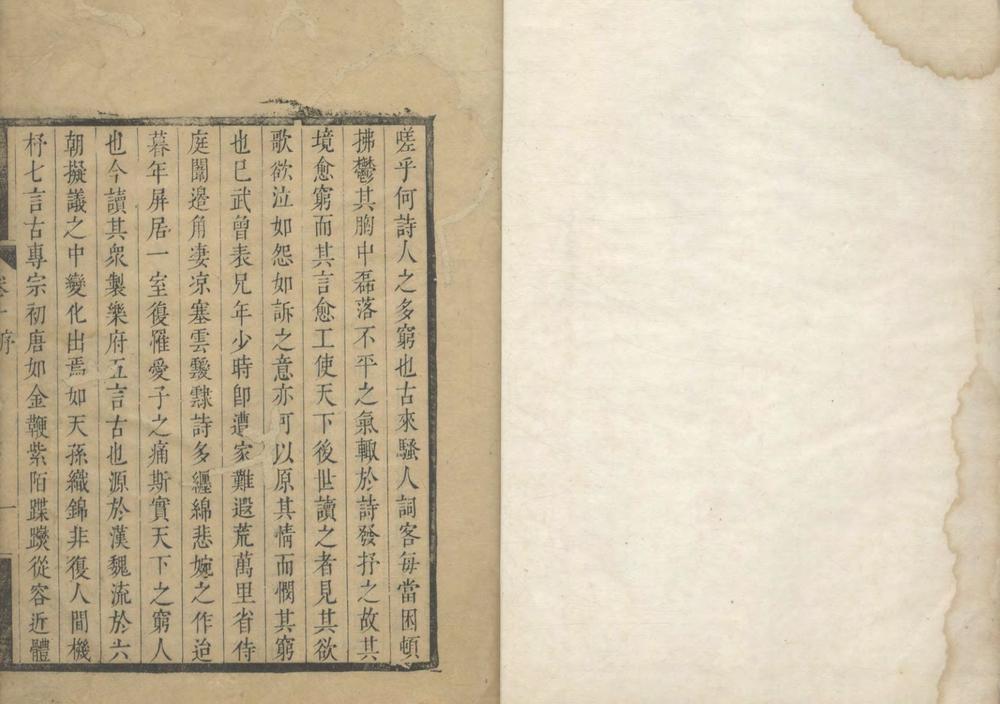 嗟乎何詩人之多窮也古來騷人詞客每當困頓
拂鬱其胸中磊落不平之氣輙於詩發抒之故其
境愈窮而其言愈工使天下後世讀之者見其欲
歌欲泣如怨如訴之意亦可以原其情而憫其窮
也巳武曾表兄年少時卽遭家難遐荒萬里省侍
庭闈邉角凄凉塞雲靉靆詩多纏綿悲婉之作迨
暮年屏居一室復罹愛子之痛斯實天下之窮人
也今讀其衆製樂府五言古也源於漢魏流於六
朝擬議之中變化出焉如天孫織錦非復人間機
杼七言古專宗初唐如金鞭紫陌蹀躞從容近體
序
一